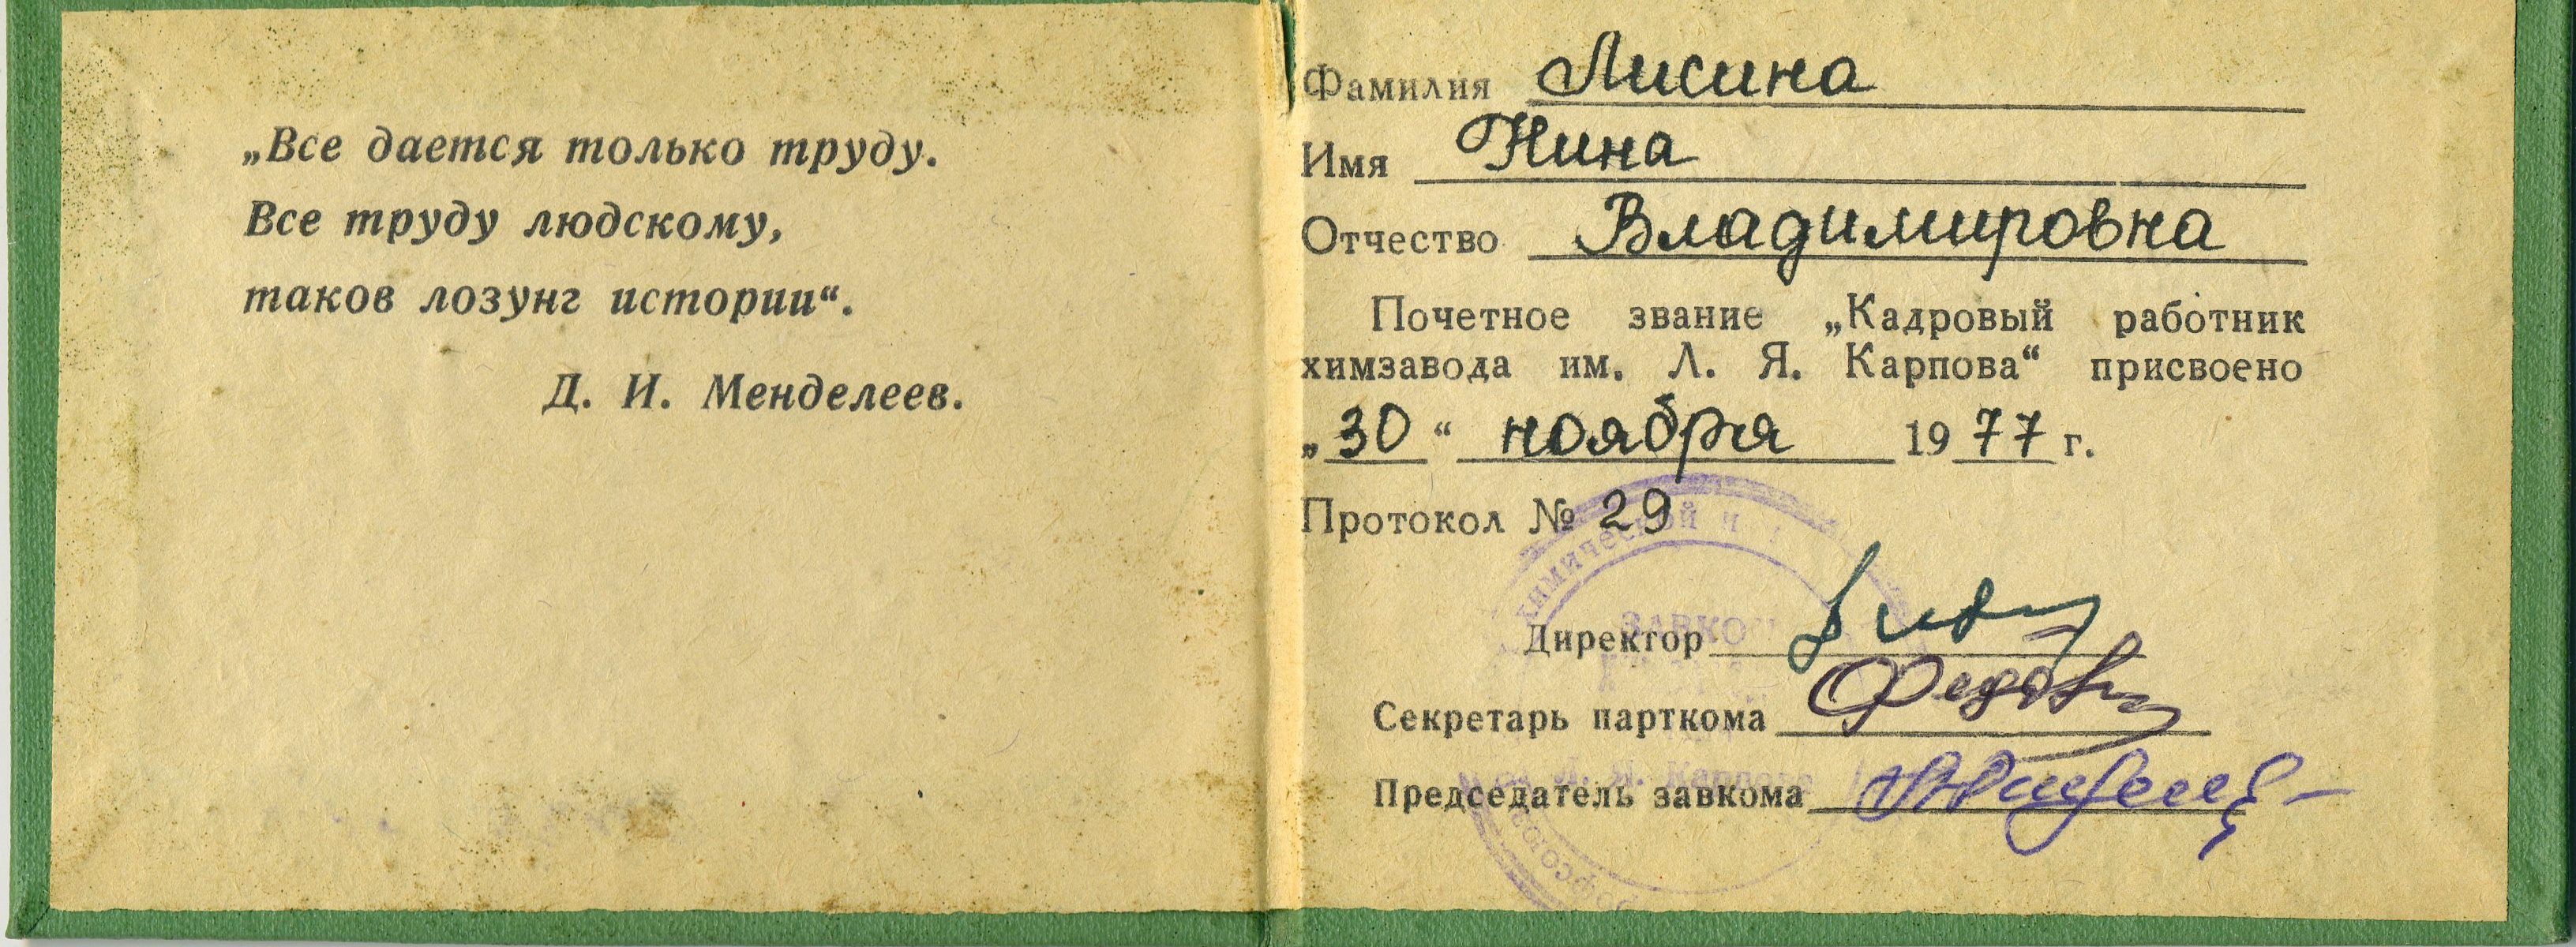 „Все дается только труду.
Все труду людскому,
таков лозунг истории“.
Д. И. Менделеев.
Фамилия Лисина
Имя Нина
Отчество Владимировна
Почетное звание „Кадровый работник
химзавода им. Л. Я. Карпова“ присвоено
„30“ ноября 1977 г.
Протокол № 29
химической
ЗАВКОМ
Директор
Секретарь парткома
Л. Я. Карпова
Председатель завкома